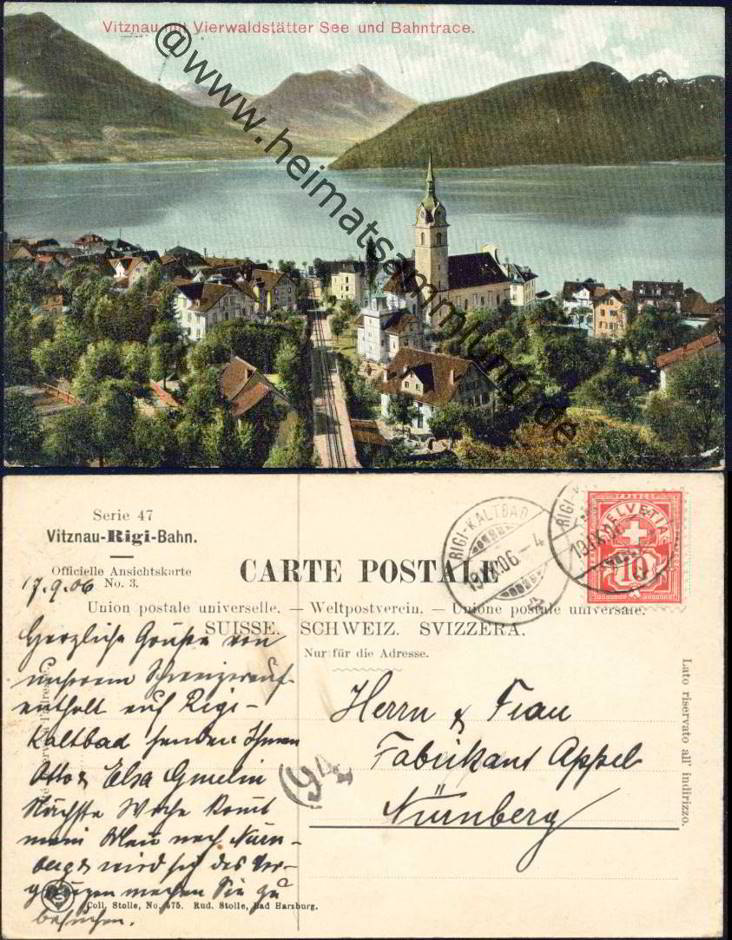 Vitznau mit Vierwaldstätter See und Bahntrace.
@www.heimatsammlung.de
Serie 47
Vitznau-Rigi-Bahn.
Officielle Ansichtskarte
No. 3.
17.9.06
CARTE POSTALE
RIGI-KALTBAD
19.IX.06.-4
RIGI-K
19.IX.06
HELVETIA
10
Union postale universelle. — Weltpostverein. — Unione postale universale.
SUISSE. SCHWEIZ. SVIZZERA.
Nur für die Adresse.
Herzliche Grüße von
unserem Schweizerauf-
enthalt auf Rigi-
Kaltbad senden Ihnen
Otto & Elsa Gmelin
Nächste Woche kommt
mein Mann nach Nürn-
berg & wird sich das Ver-
gnügen machen Sie zu
besuchen.
Herrn & Frau
Fabrikant Appel
Nürnberg
(94
Lato riservato all' indirizzo.
Coll. Stolle, No. 475. Rud. Stolle, Bad Harzburg.